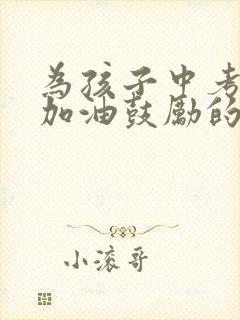 為孩子中考
加油鼓勵的
小滚哥